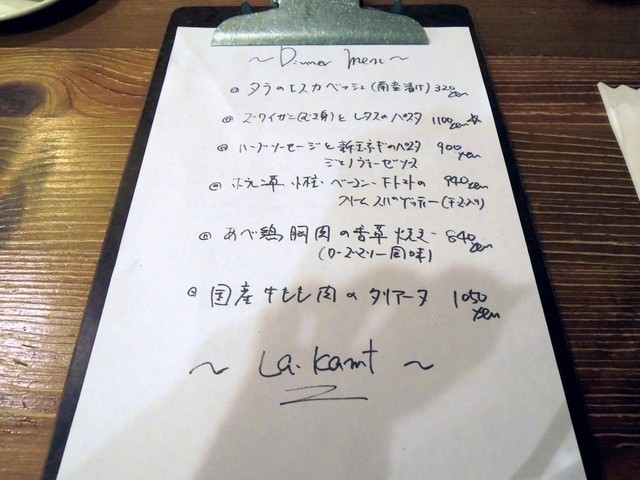 ~ Dinner Menu ~
タラのエスカベッシュ(南蛮漬け) 320yen
ズワイガニ(むき身)とレタスのパスタ 1100yen
ハーブソーセージと新玉ネギのパスタ 900yen
ジェノヴェーゼソース
ほうれん草 小柱・ベーコン・トマトの 940yen
クリームスパゲッティー(チーズ入り)
あべ鶏胸肉の香草焼き 840yen
(ローズマリー風味)
国産牛もも肉のタリアータ 1050yen
~ La. Kamt ~